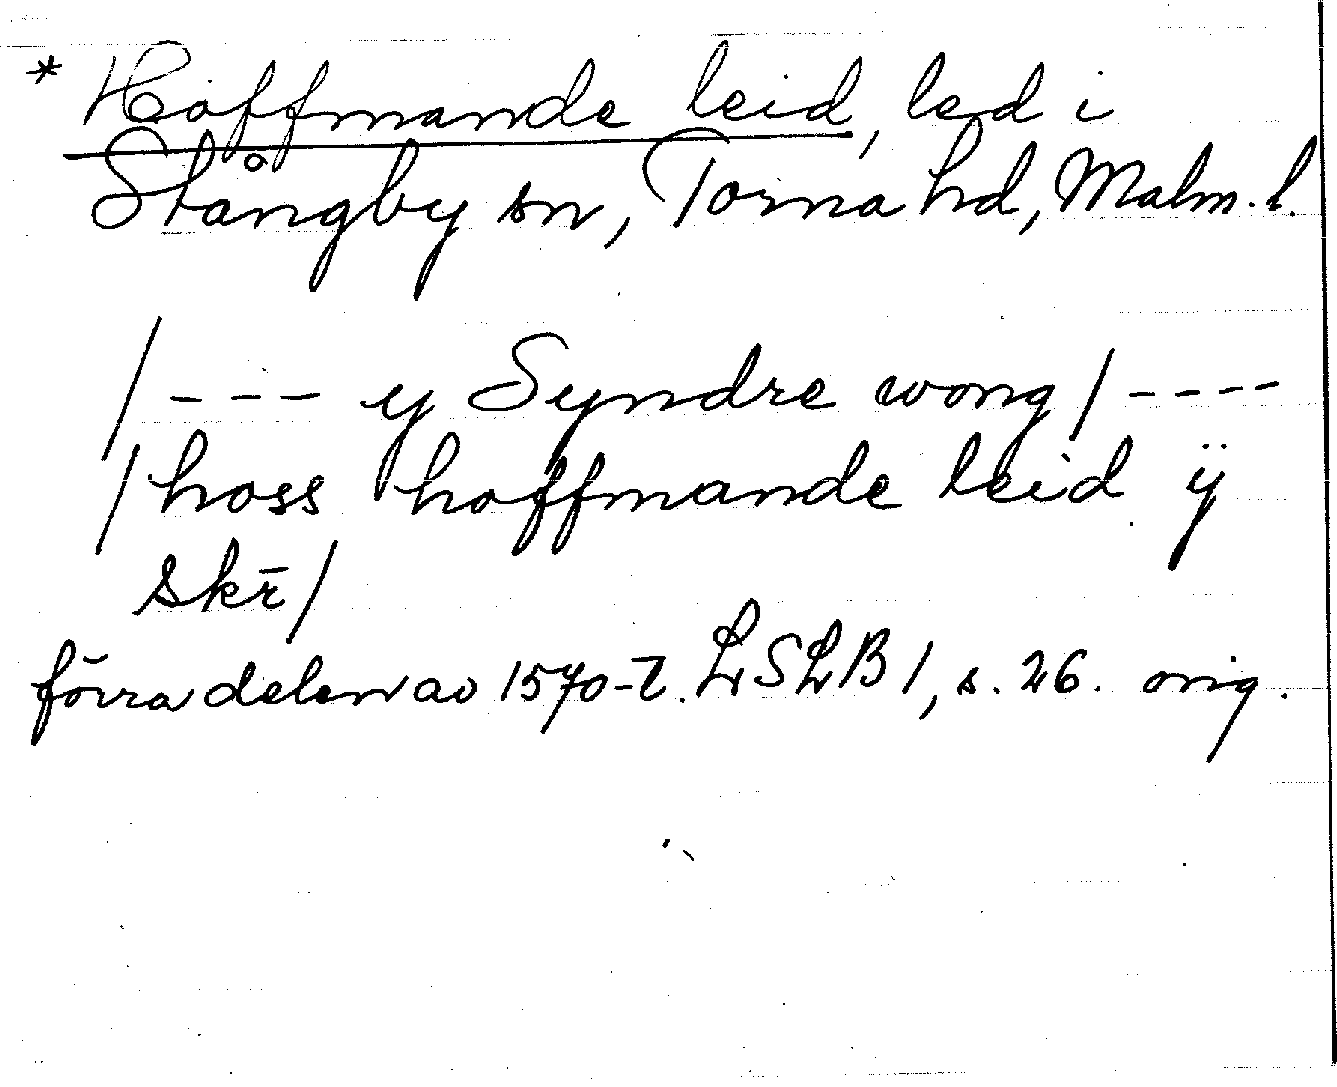 * Hoffmande leid, led i
Stångby sn, Torna hd, Malm. l.
/ - - - y Syndre wong / - - - -
/ hoss hoffmande leid ÿ
skr̄ /
förra delen av 1570-t. LSLB 1, s. 26. orig.